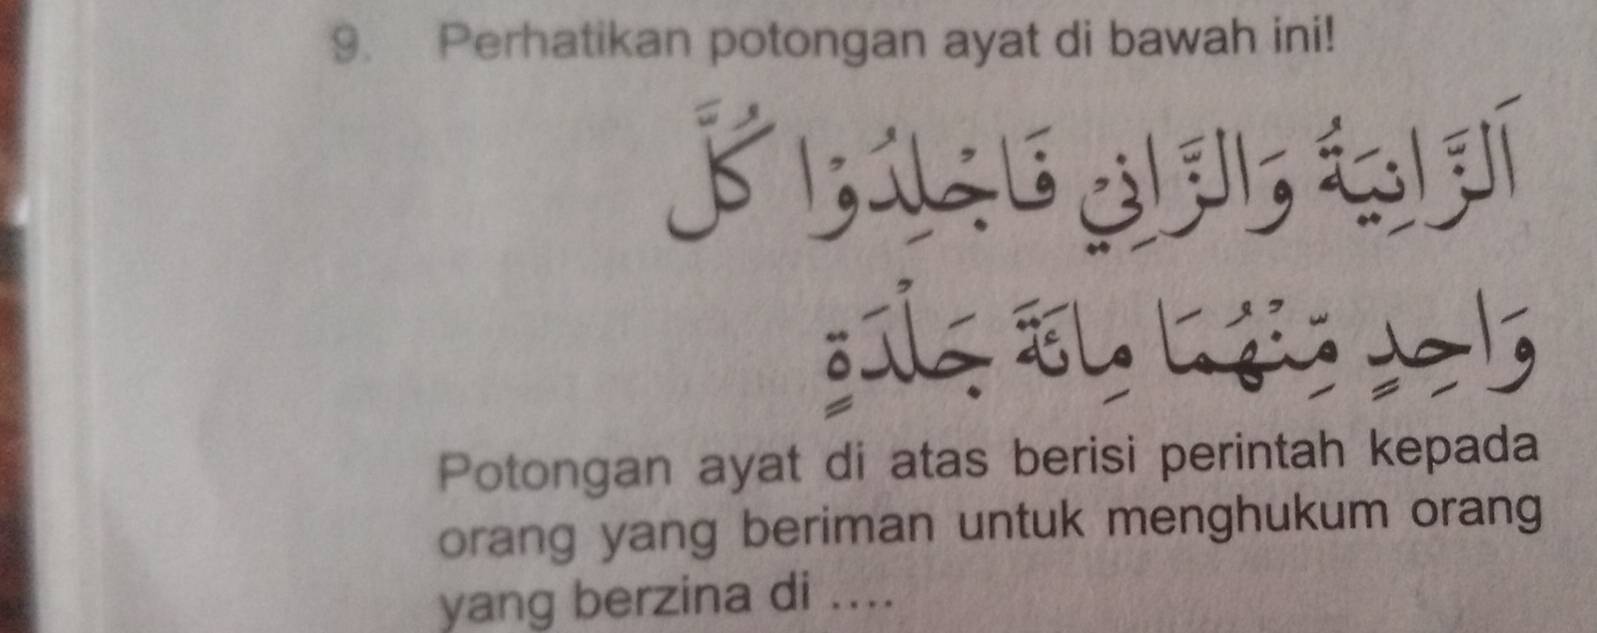 9. Perhatikan potongan ayat di bawah ini!
اَلزَّانِيَةُ وَالزَّانِيْ فَاجْلِدُوْا كُلَّ
وَاحِدٍ مِّنْهُمَا مِائَةَ جَلْدَةٍ
Potongan ayat di atas berisi perintah kepada
orang yang beriman untuk menghukum orang
yang berzina di ....